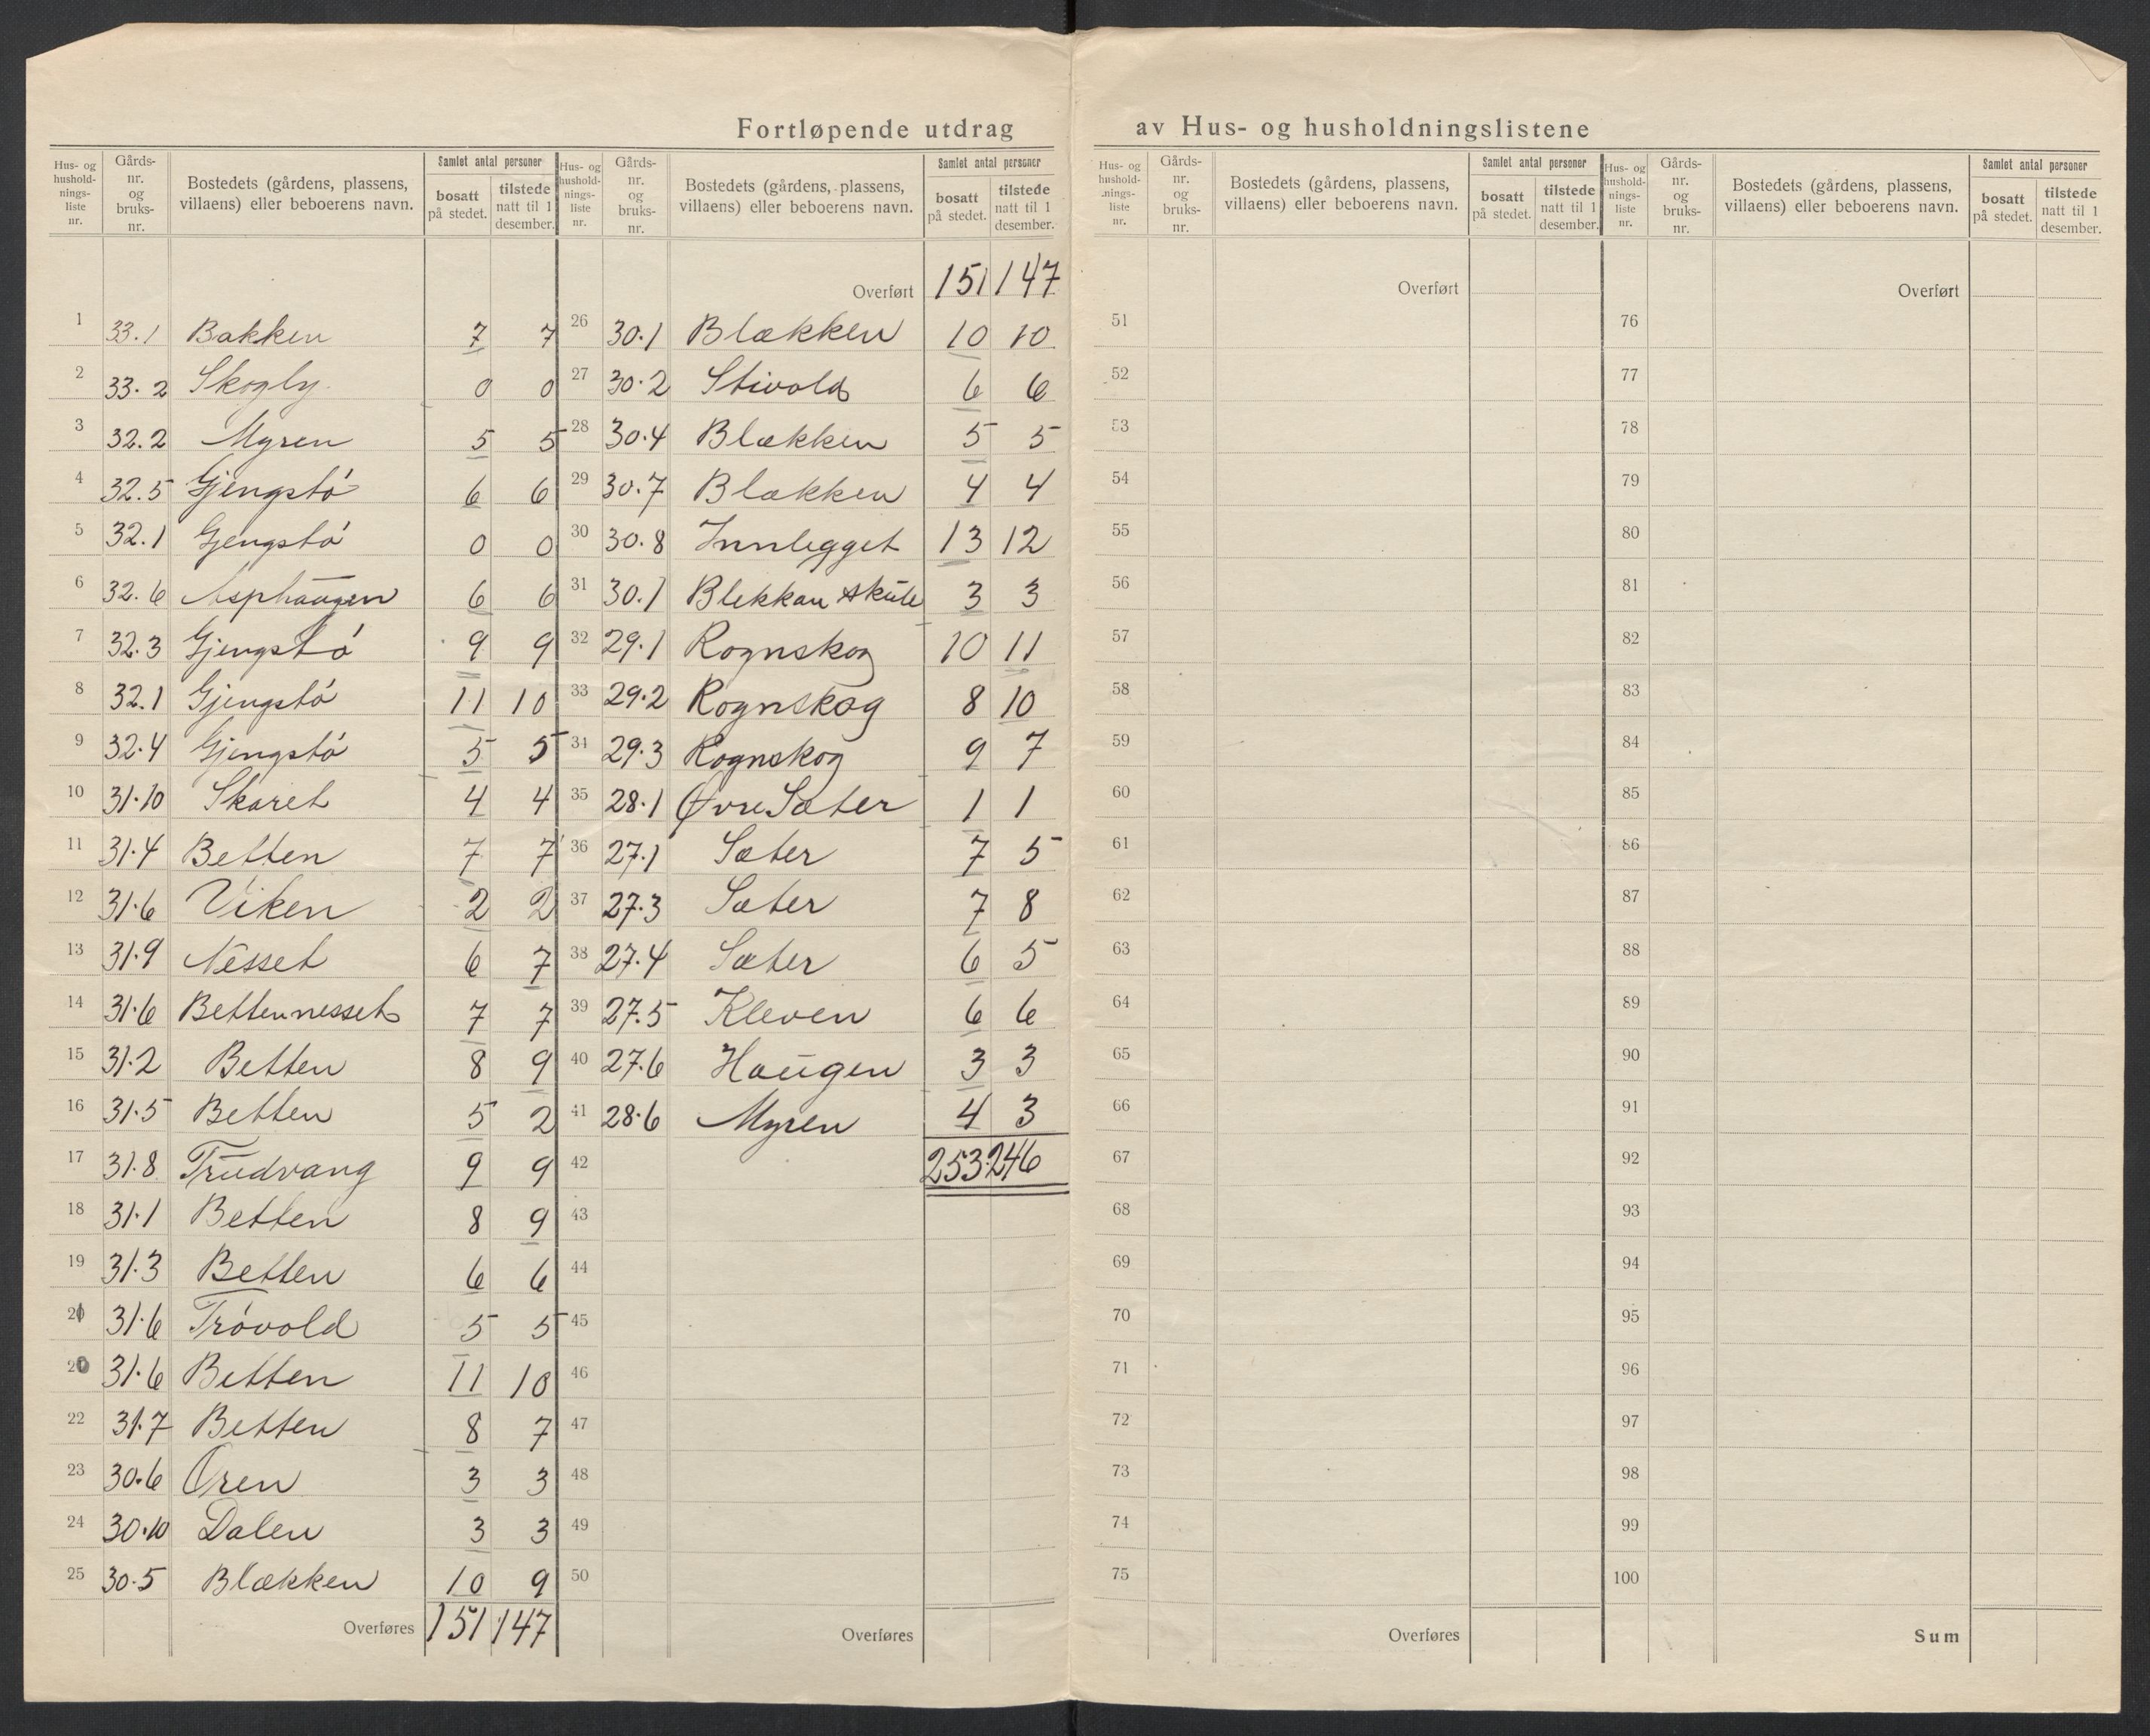 Fortløpende utdrag av Hus- og husholdningslistene
Hus- og husholdningsliste nr. | Gårdsnr. og bruksnr. | Bostedets (gårdens, plassens, villaens) eller beboerens navn. | Samlet antal personer bosatt på stedet. | tilstede natt til 1 desember.
1 33.1 Bakken 7 7
2 33.2 Skogly 0 0
3 32.2 Myren 5 5
4 32.5 Gjengstó 6 6
5 32.1 Gjengstó 0 0
6 32.6 Asphaugen 6 6
7 32.3 Gjengstó 9 9
8 32.1 Gjengstó 11 10
9 32.4 Gjengstó 5 5
10 31.10 Skaret 4 4
11 31.4 Betten 7 7
12 31.6 Viken 2 2
13 31.9 Nesset 6 7
14 31.6 Bettennesset 7 7
15 31.2 Betten 8 9
16 31.5 Betten 5 2
17 31.8 Trudvang 9 9
18 31.1 Betten 8 9
19 31.3 Betten 6 6
21 31.6 Tróvold 5 5
20 31.6 Betten 11 10
22 31.7 Betten 8 7
23 30.6 Oren 3 3
24 30.10 Dalen 3 3
25 30.5 Blækken 10 9
Overføres 151 147
Hus- og husholdningsliste nr. | Gårdsnr. og bruksnr. | Bostedets (gårdens, plassens, villaens) eller beboerens navn. | Samlet antal personer bosatt på stedet. | tilstede natt til 1 desember.
Overført 151 147
26 30.1 Blækken 10 10
27 30.2 Stivold 6 6
28 30.4 Blækken 5 5
29 30.7 Blækken 4 4
30 30.8 Innlegget 13 12
31 30.1 Blekkan skule 3 3
32 29.1 Rognskog 10 11
33 29.2 Rognskog 8 10
34 29.3 Rognskog 9 7
35 28.1 Øvre Sæter 1 1
36 27.1 Sæter 7 5
37 27.3 Sæter 7 8
38 27.4 Sæter 6 5
39 27.5 Kleven 6 6
40 27.6 Haugen 3 3
41 28.6 Myren 4 3
42 253 246
43
44
45
46
47
48
49
50
Overføres
Hus- og husholdningsliste nr. | Gårdsnr. og bruksnr. | Bostedets (gårdens, plassens, villaens) eller beboerens navn. | Samlet antal personer bosatt på stedet. | tilstede natt til 1 desember.
Overført
51
52
53
54
55
56
57
58
59
60
61
62
63
64
65
66
67
68
69
70
71
72
73
74
75
Overføres
Hus- og husholdningsliste nr. | Gårdsnr. og bruksnr. | Bostedets (gårdens, plassens, villaens) eller beboerens navn. | Samlet antal personer bosatt på stedet. | tilstede natt til 1 desember.
Overført
76
77
78
79
80
81
82
83
84
85
86
87
88
89
90
91
92
93
94
95
96
97
98
99
100
Sum